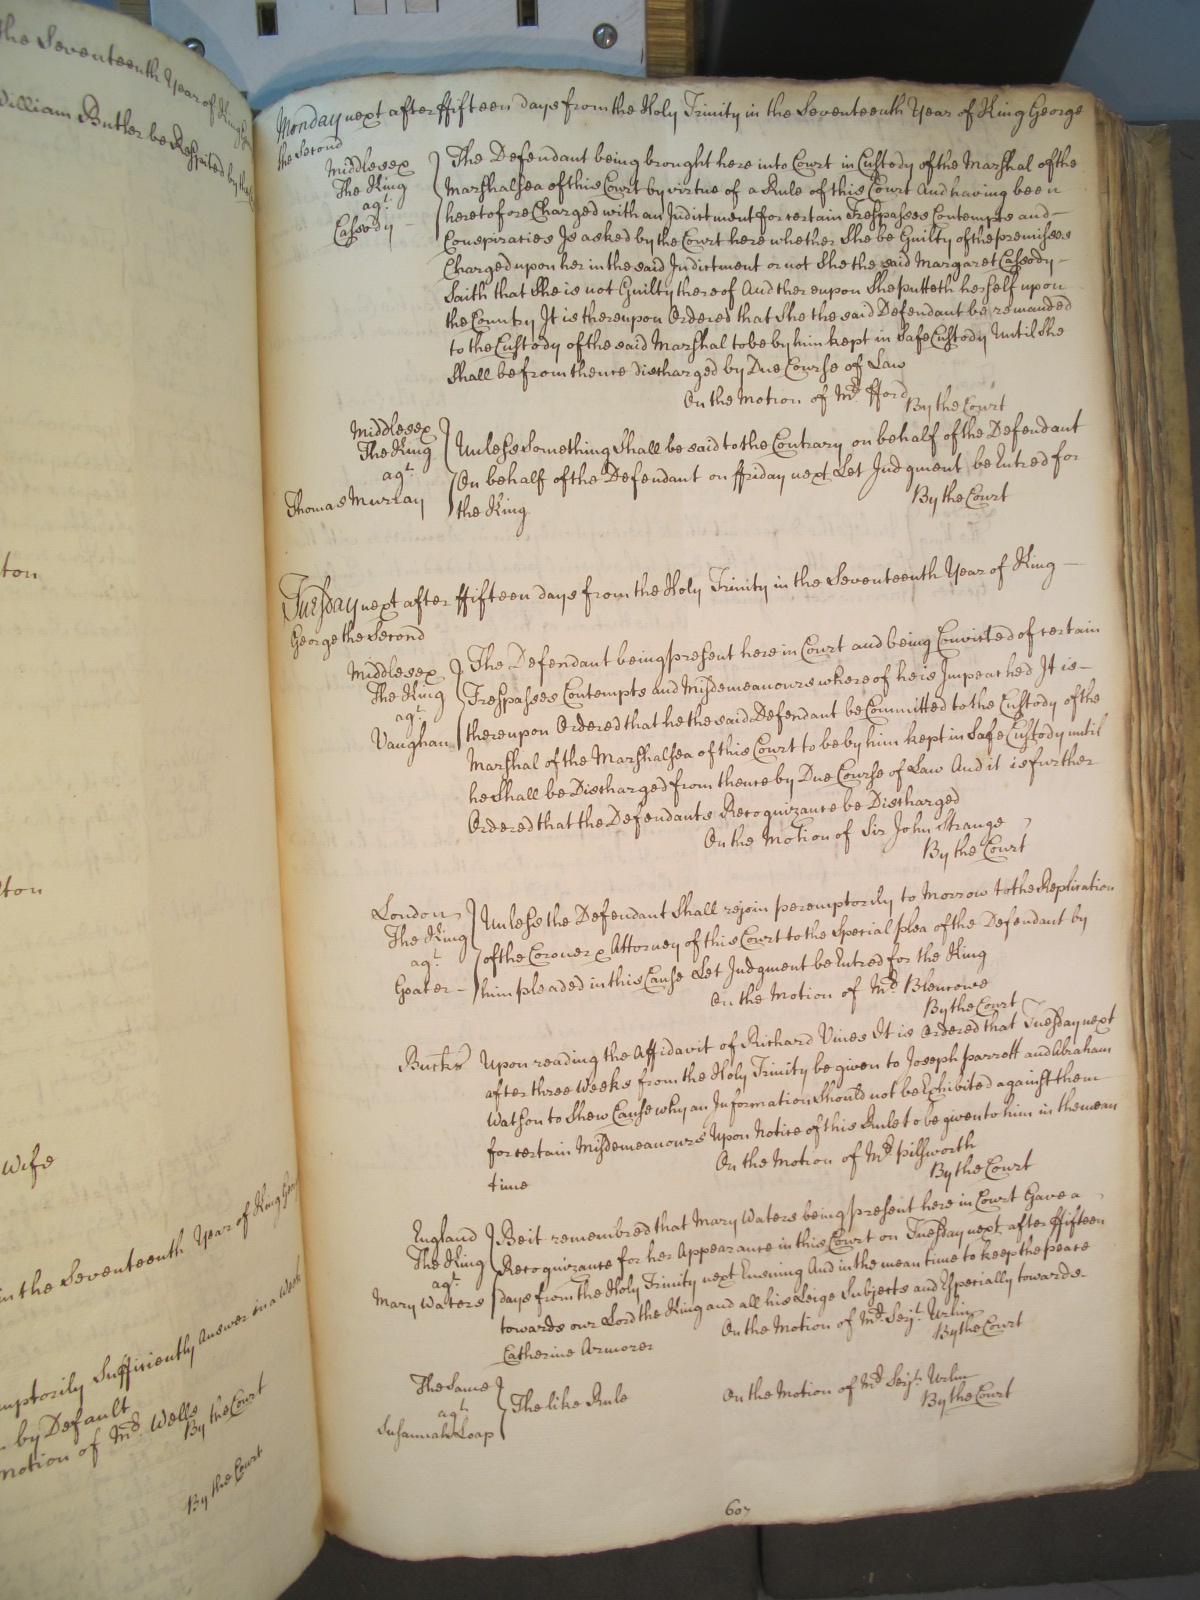 the Seventeenth Year of King
William Buther be Respited by the
ton
ton
Wife
in the Seventeenth Year of King
mptorily Sufficiently Answer in a Week
by Default
motion of Mr. Wells
By the Court
By the Court
Monday next after ffifteen days from the Holy Trinity in the Seventeenth Year of King George
the Second
Middlesex
The King
agt.
Cassody
The Defendant being brought here into Court in Custody of the Marshal of the
Marshalsea of this Court by virtue of a Rule of this Court And having been
heretofore Charged with an Indictment for certain Trespasses Contempts and
Conspiracies Is asked by the Court here whether She be Guilty of the premisses
Charged upon her in the said Indictment or not She the said Margaret Cassody
Saith that She is not Guilty thereof And thereupon She putteth herself upon
the Country It is thereupon Ordered that She the said Defendant be remanded
to the Custody of the said Marshal to be by him kept in Safe Custody Until She
Shall be from thence discharged by Due Course of Law
On the Motion of Mr. fford
By the Court
Middlesex
The King
agt.
Thomas Murray
Unless Something Shall be said to the Contrary on behalf of the Defendant
On behalf of the Defendant on ffriday next Let Judgment be Entred for
the King
By the Court
Tuesday next after ffifteen days from the Holy Trinity in the Seventeenth Year of King
George the Second
Middlesex
The King
agt.
Vaughan
The Defendant being present here in Court and being Convicted of certain
Trespasses Contempts and Misdemeanours whereof he is Impeached It is
thereupon Ordered that he the said Defendant be Committed to the Custody of the
Marshal of the Marshalsea of this Court to be by him kept in Safe Custody until
he Shall be Discharged from thence by Due Course of Law And it is further
Ordered that the Defendants Recognizance be Discharged
On the Motion of Sir John Strange
By the Court
London
The King
agt.
Goater
Unless the Defendant Shall rejoin peremptorily to Morrow to the Replication
of the Coroner & Attorney of this Court to the Special plea of the Defendant by
him pleaded in this Cause Let Judgment be Entred for the King
On the Motion of Mr. Blencowe
By the Court
Bucks
Upon reading the Affidavit of Richard Vines It is Ordered that Tuesday next
after three Weeks from the Holy Trinity be given to Joseph parrott and Abraham
Watson to Shew Cause why an Information Should not be Exhibited against them
for certain Misdemeanours Upon Notice of this Rule to be given to him in the mean
time
On the Motion of Mr. pilsworth
By the Court
England
The King
agt.
Mary Waters
Be it remembred that Mary Waters being present here in Court Gave a
Recognizance for her Appearance in this Court on Tuesday next after ffifteen
days from the Holy Trinity next Ensuing And in the mean time to keep the peace
towards our Lord the King and all his Leige Subjects and Especially towards
Catherine Armorer
On the Motion of Mr. Serjt. Urlin
By the Court
The Same
agt.
Susannah Loap
The like Rule
On the Motion of Mr. Serjt. Urlin
By the Court
607